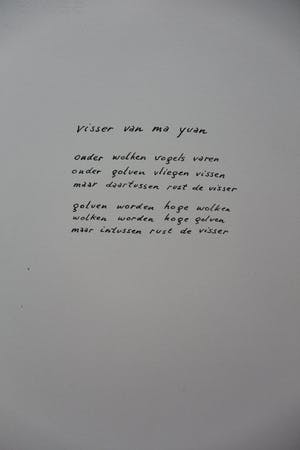 visser van ma yuan
onder wolken vogels varen
onder golven vliegen vissen
maar daartussen rust de visser
golven worden hoge wolken
wolken worden hoge golven
maar intussen rust de visser